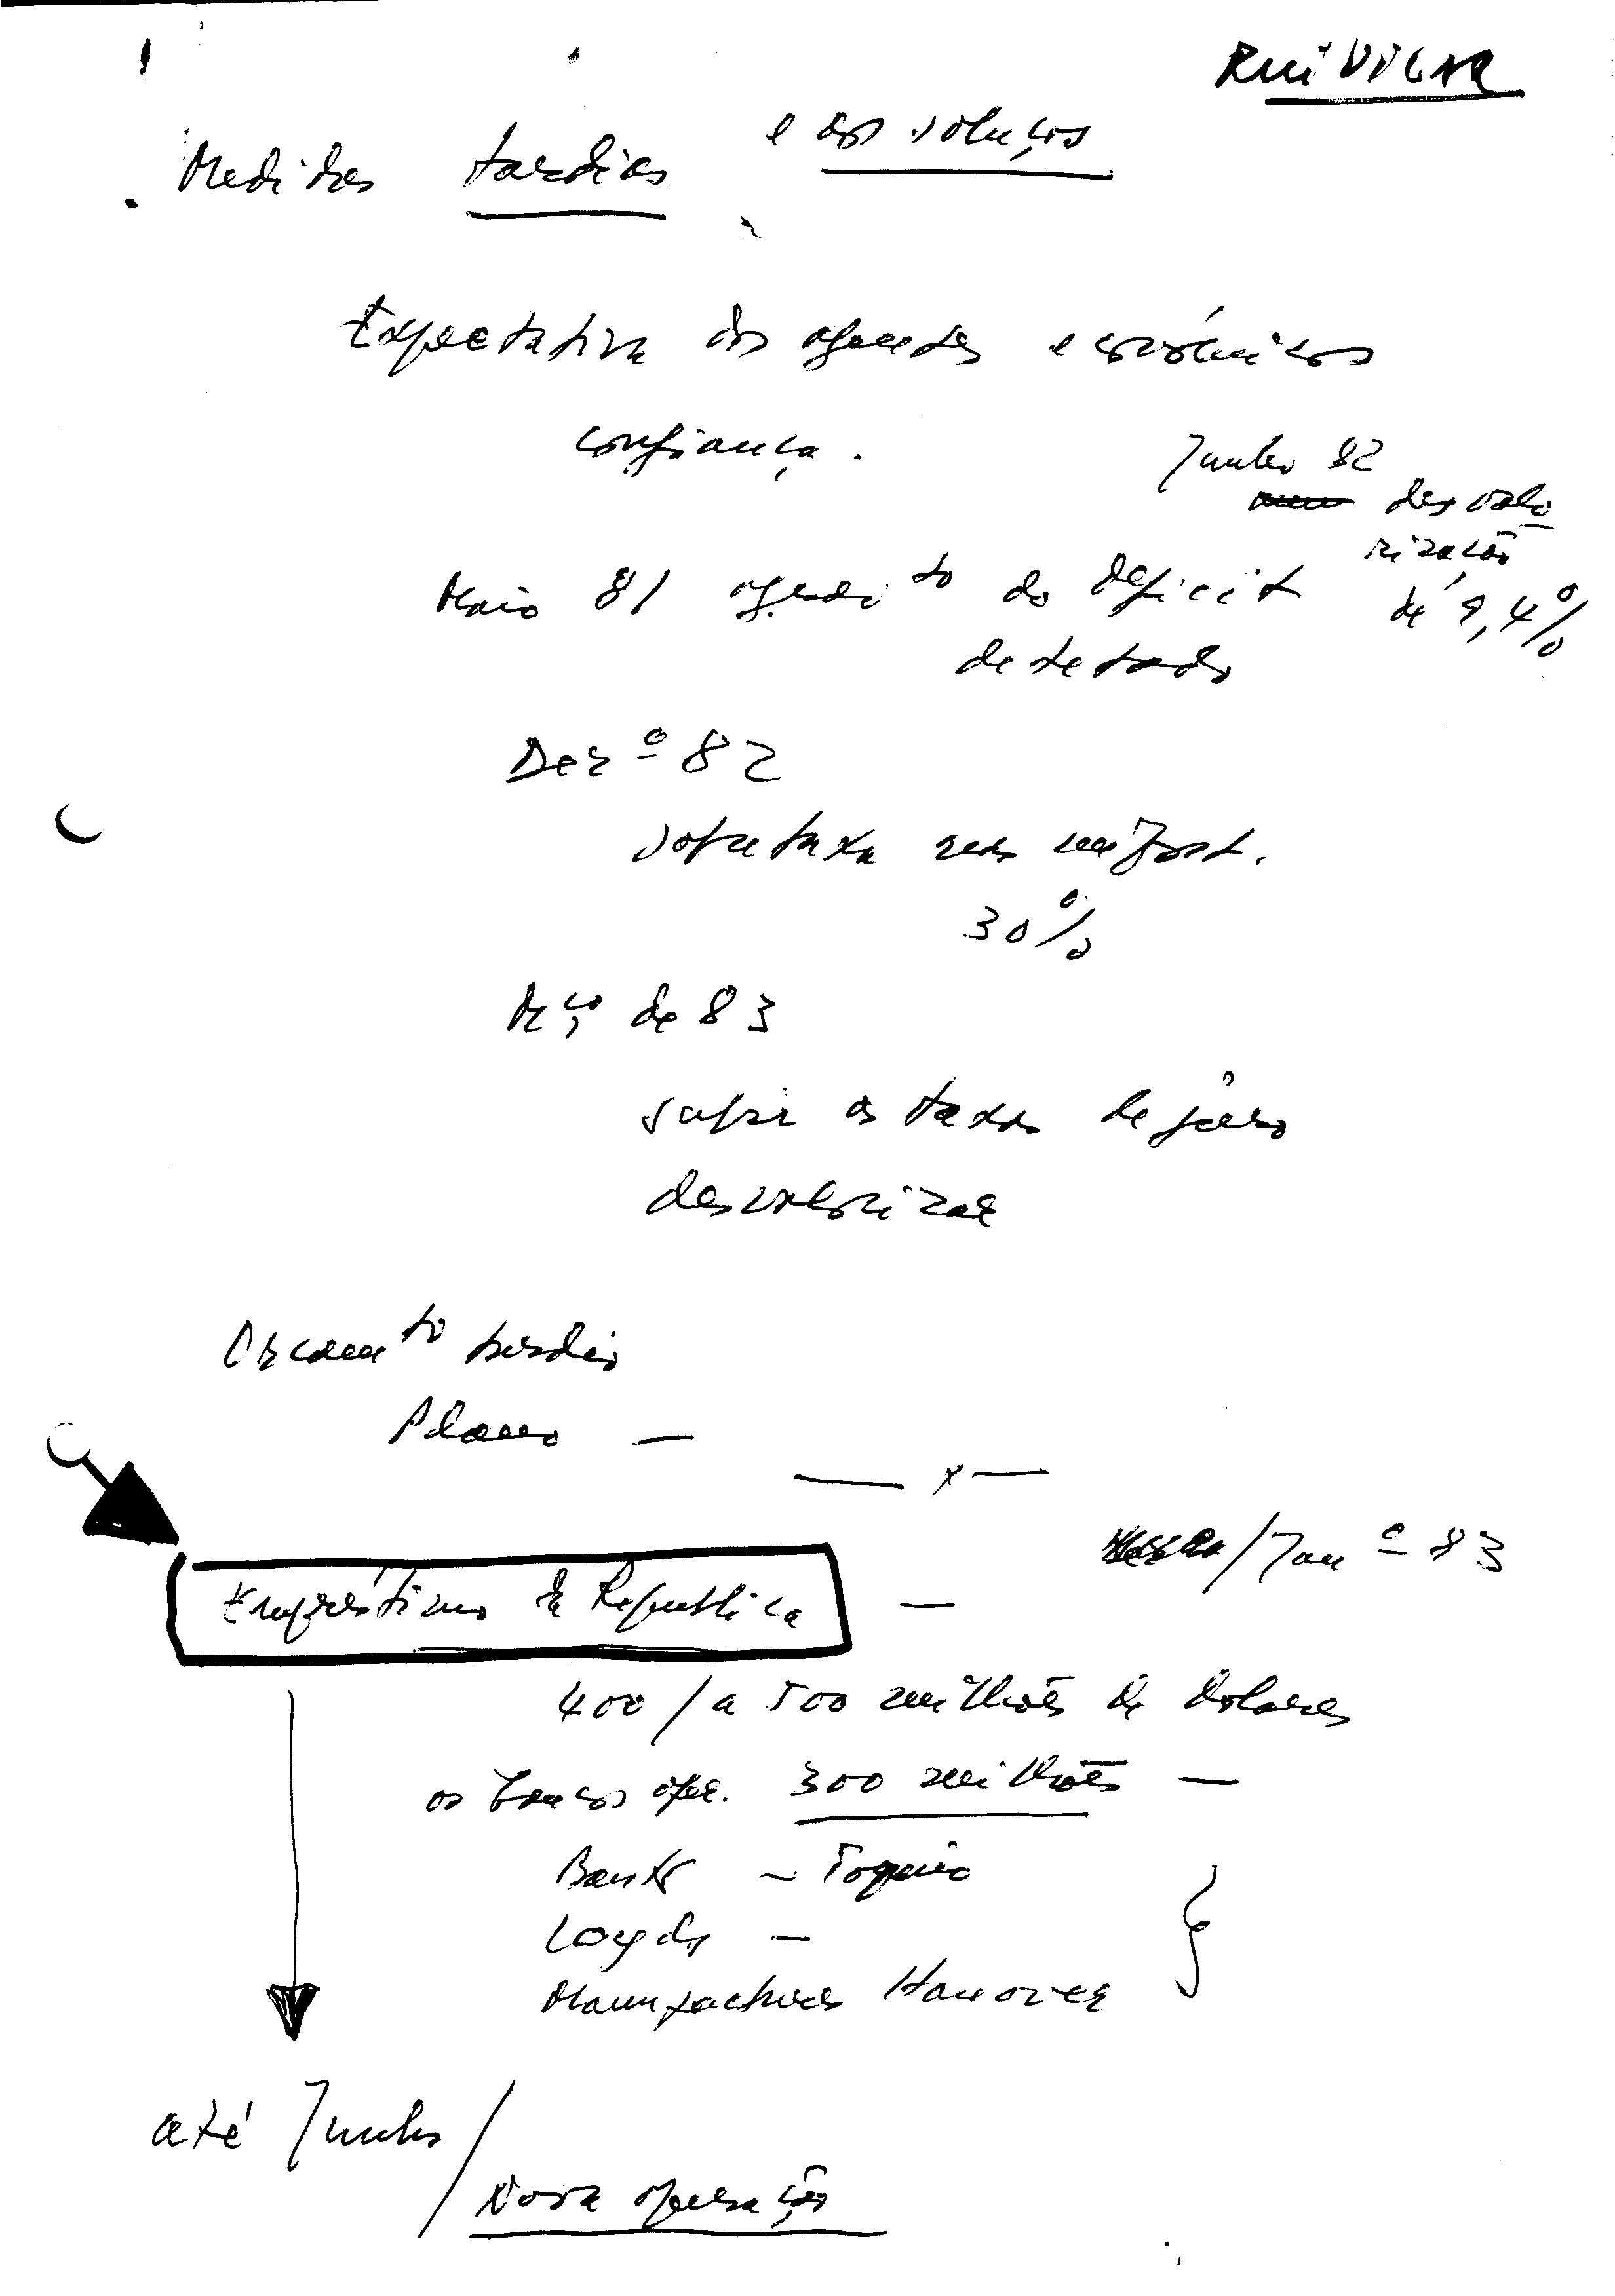 Rui VILAR
Medidas tardias e as soluções
Expectativa dos agentes económicos
confiança.
Junho 82
desvalo
rização
de 9,4%
Maio 81 agradito do deficit
detetado
Dezº 82
sobretaxa nas import.
30%
Mço de 83
subir as taxas de juro
desvalorizar
Orcamto tardio
Plano —
— x —
/Janº 83
Empréstimo da República —
400 / a 500 milhões de dolares
os bancos ofer. 300 milhões —
Bank — Toquio
Loyds —
Manufactures Hanover
até Junho /
Nova operação